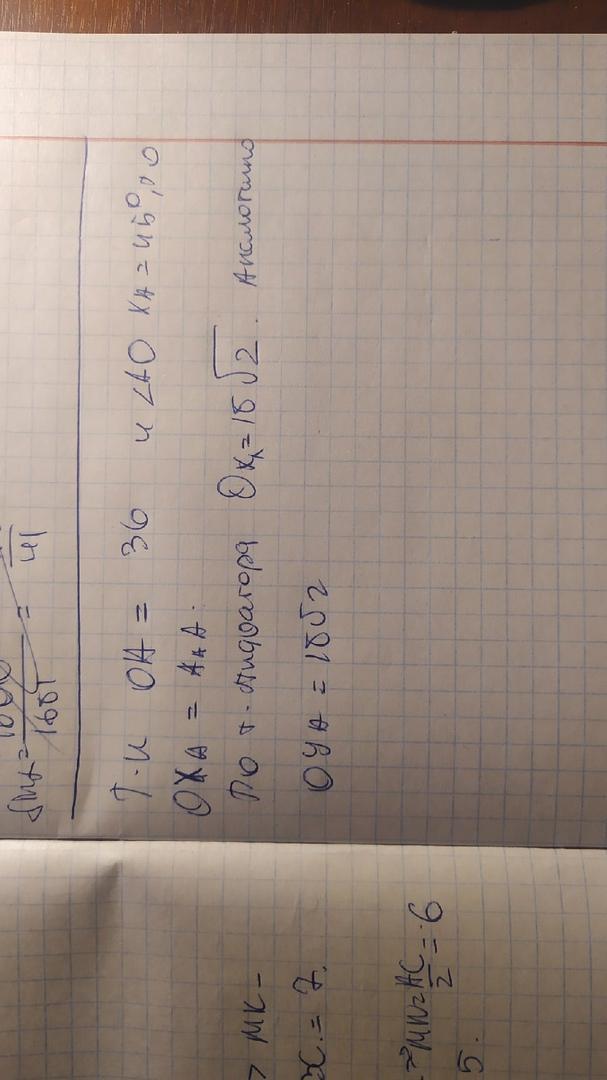 sin α =
1681
=
41
Т.к OA = 36 и ∠AO XA = 45°, то
OXA = AXA.
По т. Пифагора OXA = 18√2. Аналогично
OYA = 18√2
MK -
x = 7.
MN = AC/2 = 6
5.